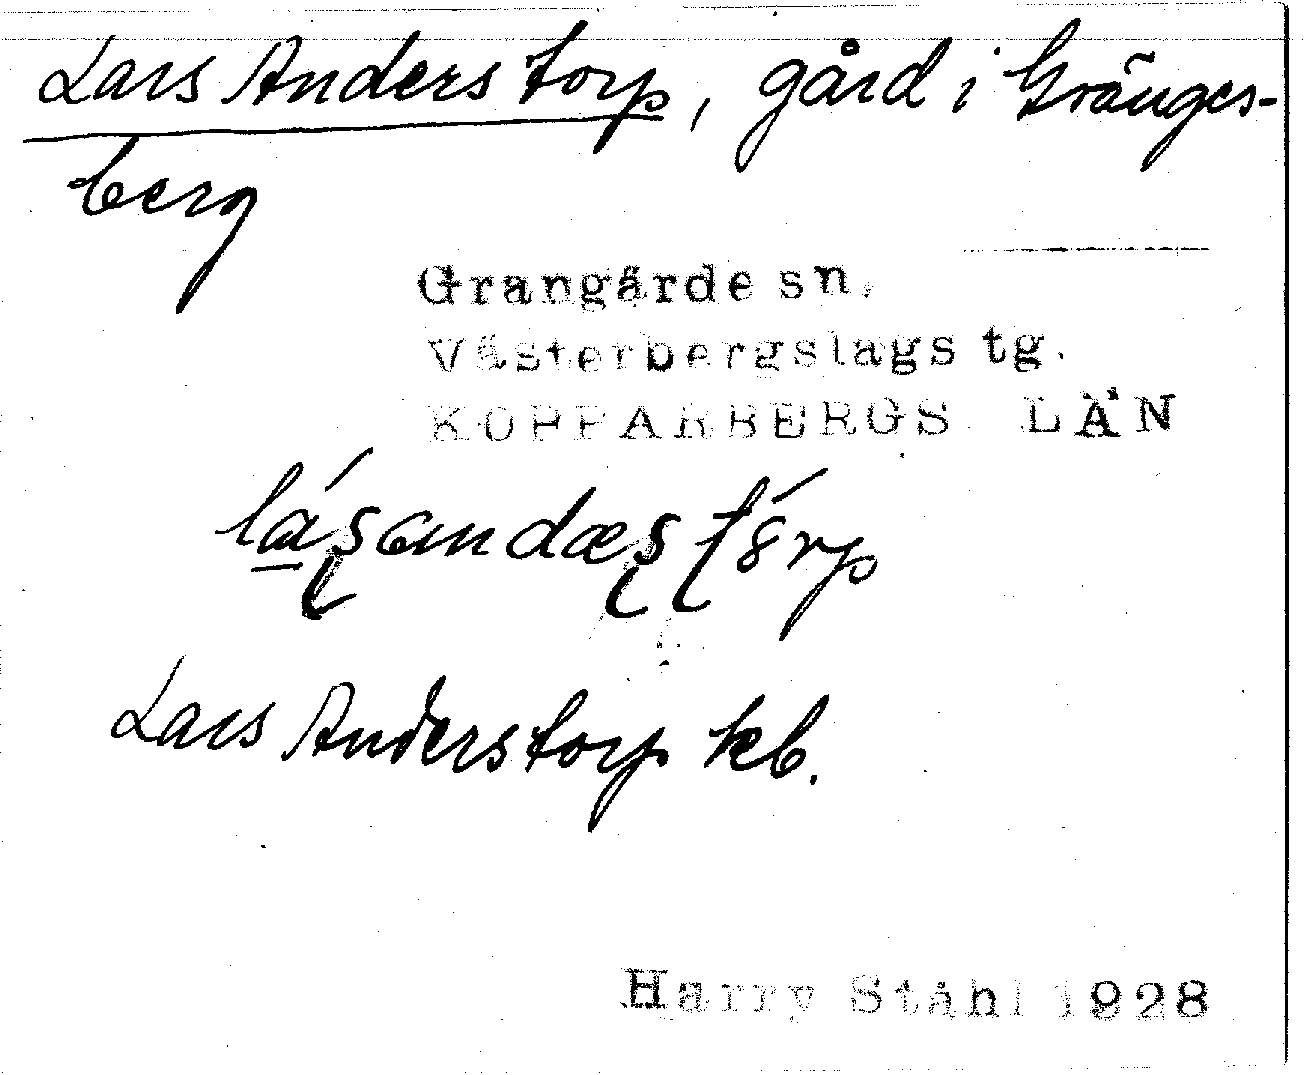 Lars Anderstorp, gård i Gränges-
berg
Grangärde sn.
Västerbergslags tg.
KOPPARBERGS LÄN
Lars Anderstorp kb.
Harry Ståhl 1928